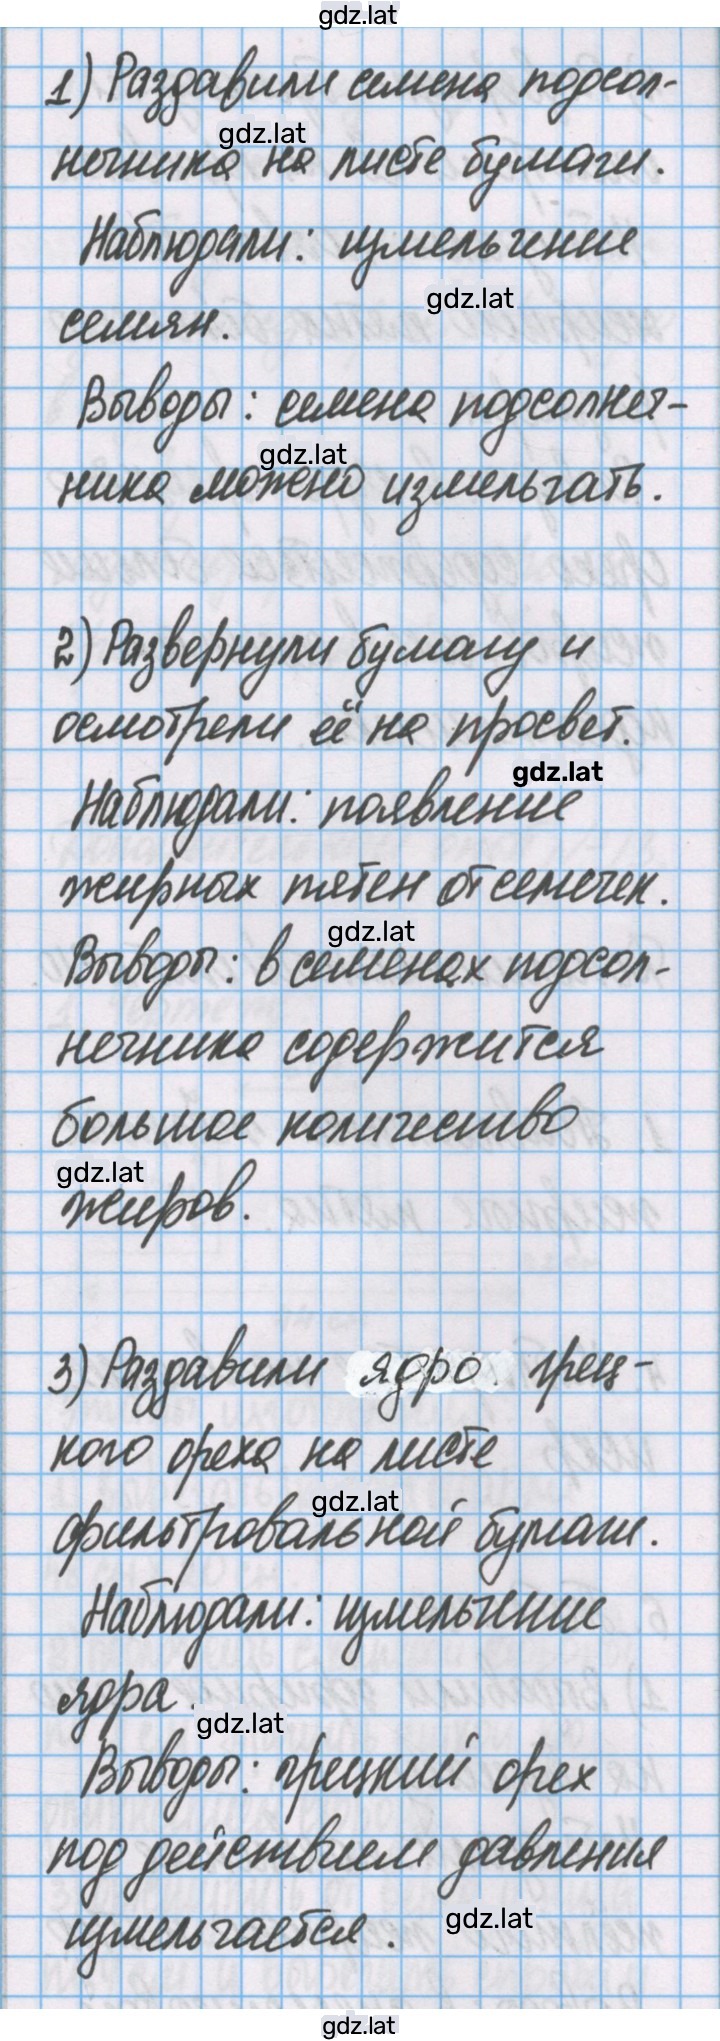 gdz.lat
1) Раздавили семена подсол-
gdz.lat
нечника на листе бумаги.
Наблюдали: измельчение
gdz.lat
семян.
Выводы: семена подсолнеч-
gdz.lat
ника можно измельчать.
2) Развернули бумагу и
осмотрели её на просвет.
gdz.lat
Наблюдали: появление
жирных пятен от семечек.
gdz.lat
Выводы: в семенах подсол-
нечника содержится
большое количество
gdz.lat
жиров.
3) Раздавили ядро грец-
кого ореха на листе
gdz.lat
фильтровальной бумаги.
Наблюдали: измельчение
ядра.
gdz.lat
Выводы: грецкий орех
под действием давления
gdz.lat
измельчается.
gdz.lat